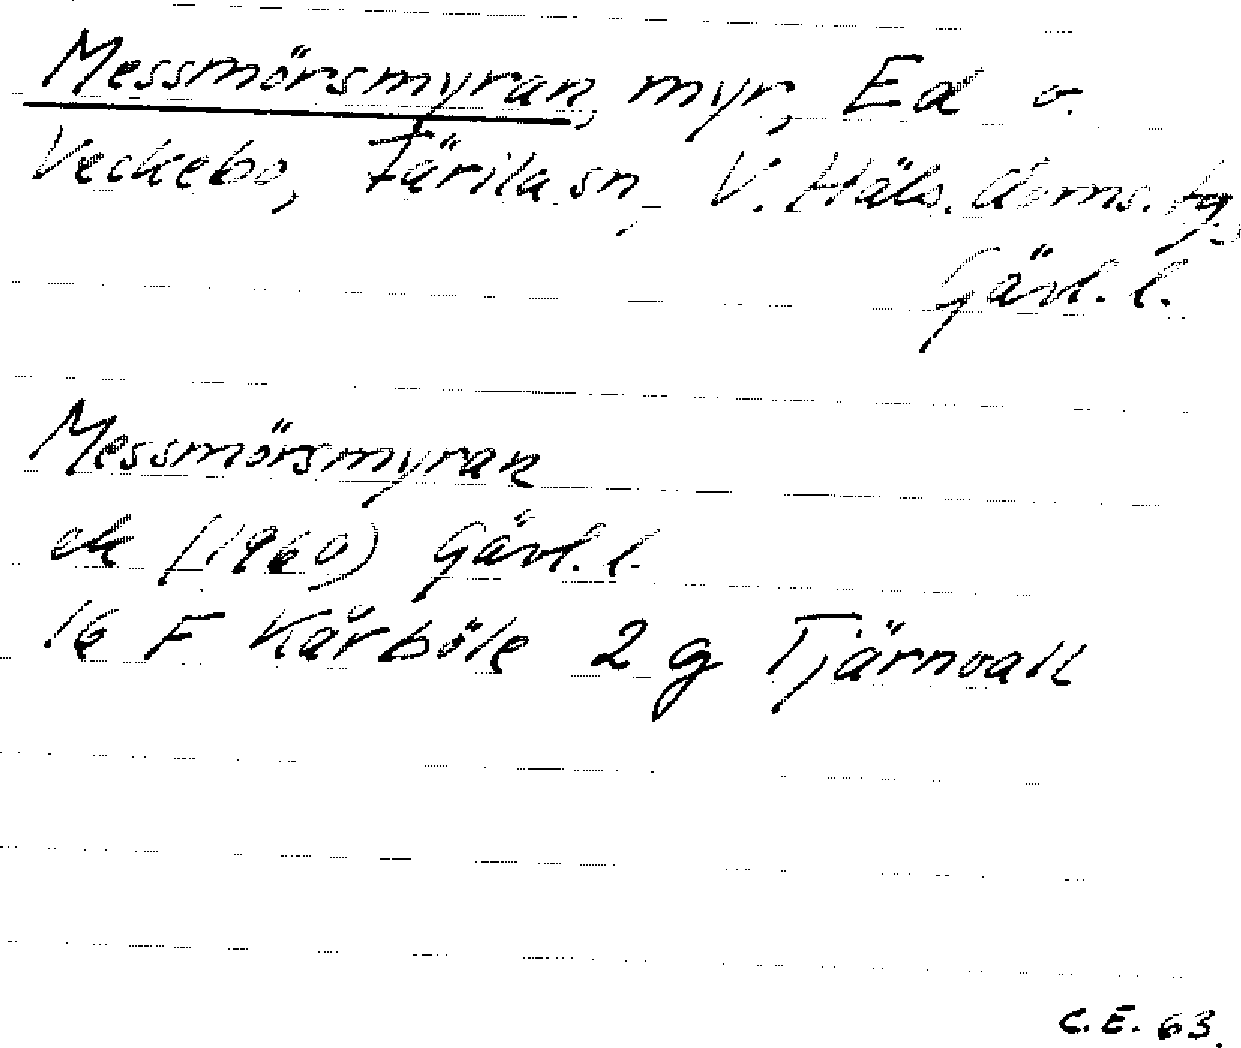 Messmörsmyran, myr, Ed o.
Veckebo, Färila sn, V. Häls. doms. tg.,
Gävl. l.
Messmörsmyran
ek (1960) Gävl. l.
16 F Kårböle 2 g Tjärnvall
C.E. 63.